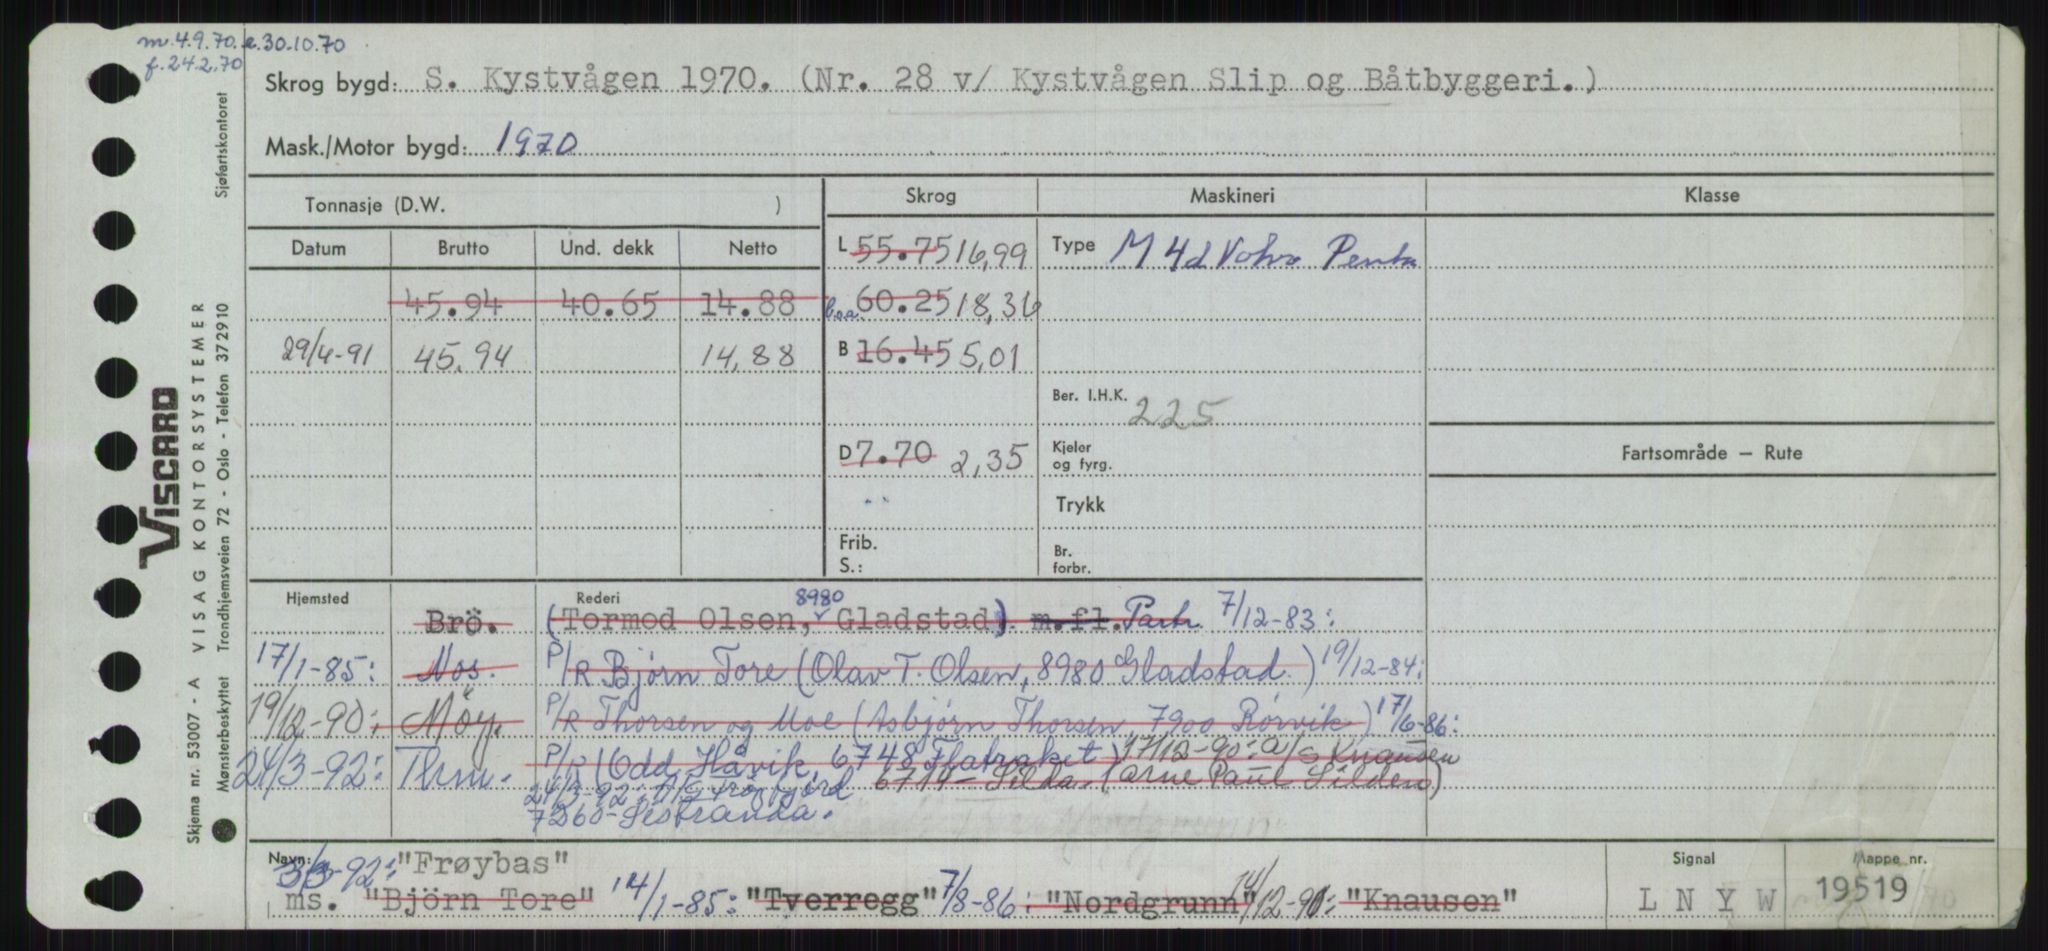 m.4.9.70. e.30.10.70
f.24.2.70
Skrog bygd: S. Kystvågen 1970. (Nr. 28 v/ Kystvågen Slip og Båtbyggeri.)
Mask./Motor bygd: 1970
Tonnasje (D.W. ) Skrog Maskineri Klasse
Datum Brutto Und. dekk Netto L 55.75 16,99 Type M 4d Volvo Penta
45.94 40.65 14.88 b.o.a. 60.25 18,36
29/4-91 45.94 14,88 B 16.45 5,01
Ber. I.H.K. 225
D 7.70 2,35 Kjeler og fyrg. Fartsområde — Rute
Trykk
Frib. S.: Br. forbr.
Hjemsted Rederi
Brö. (Tormod Olsen, 8980 Gladstad). m.fl. Partr. 7/12-83:
17/1-85: Nos. P/R Bjørn Tore (Olav T. Olsen, 8980 Gladstad.) 19/12-84:
19/12-90: Möy. P/R Thorsen og Moe (Asbjørn Thorsen, 7900 Rörvik) 17/6-86:
24/3-92: Thm. P/R (Odd Håvik, 6748 Flatraket) 17/12-90: A/S Knausen
6714 - Silda. (Arne Paul Silden)
24/3-92: A/S Frøyfjord
7260-Sistranda.
Navn: 3/3-92: "Frøybas"
ms. "Björn Tore" 14/1-85: "Tverregg" 7/8-86: "Nordgrunn" 14/12-90: "Knausen"
Signal L N Y W
Mappe nr. 19519
VISCARD
Skjema nr. 53007 - A VISAG KONTORSYSTEMER
Mønsterbeskyttet Trondhjemsveien 72 - Oslo - Telefon 372910
Sjøfartskontoret